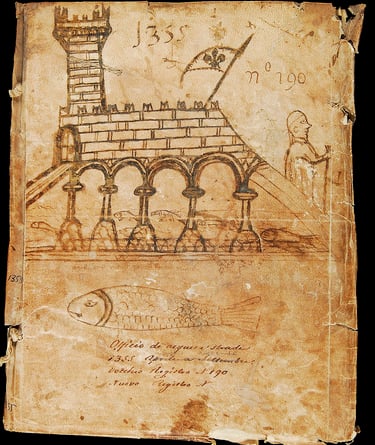 1355
nº 190
1355
Officio de
1355 Aprile a Settembre
Vecchio Registro Nº 190
Nuovo Registro Nº